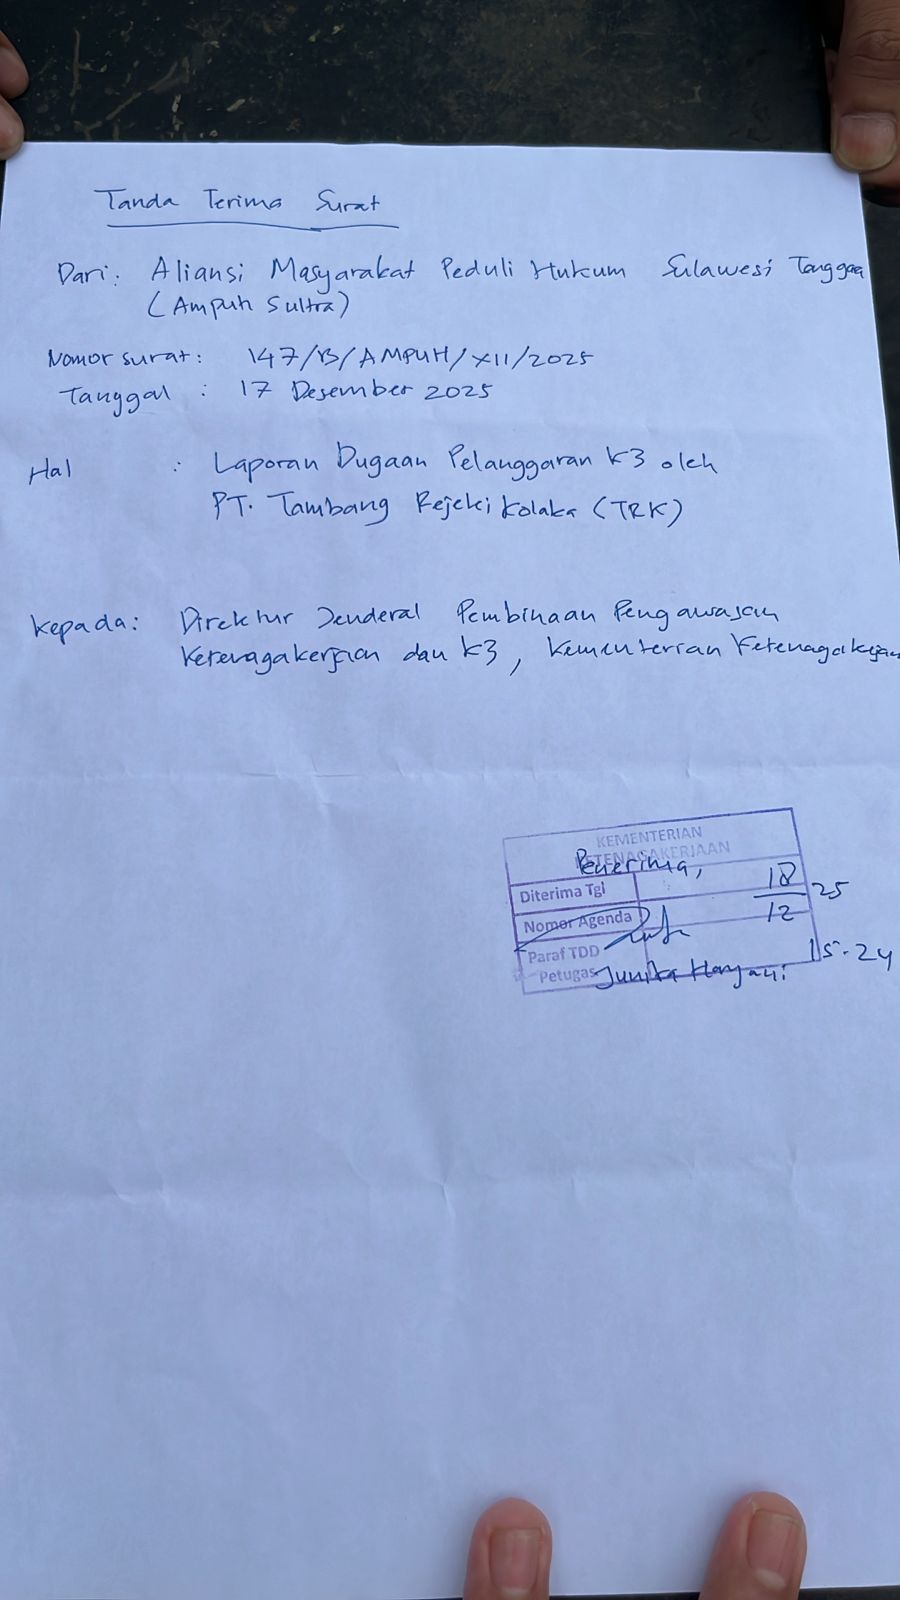 Tanda Terima Surat
Dari: Aliansi Masyarakat Peduli Hukum Sulawesi Tenggara
(Ampuh Sultra)
Nomor surat: 147/B/AMPUH/XII/2025
Tanggal : 17 Desember 2025
Hal : Laporan Dugaan Pelanggaran K3 oleh
PT. Tambang Rejeki Kolaka (TRK)
Kepada: Direktur Jenderal Pembinaan Pengawasan
Ketenagakerjaan dan K3, Kementerian Ketenagakerjaan
KEMENTERIAN
KETENAGAKERJAAN
Penerima,
Diterima Tgl 18/12 25
Nomor Agenda
Paraf TDD 15.24
Petugas Junika